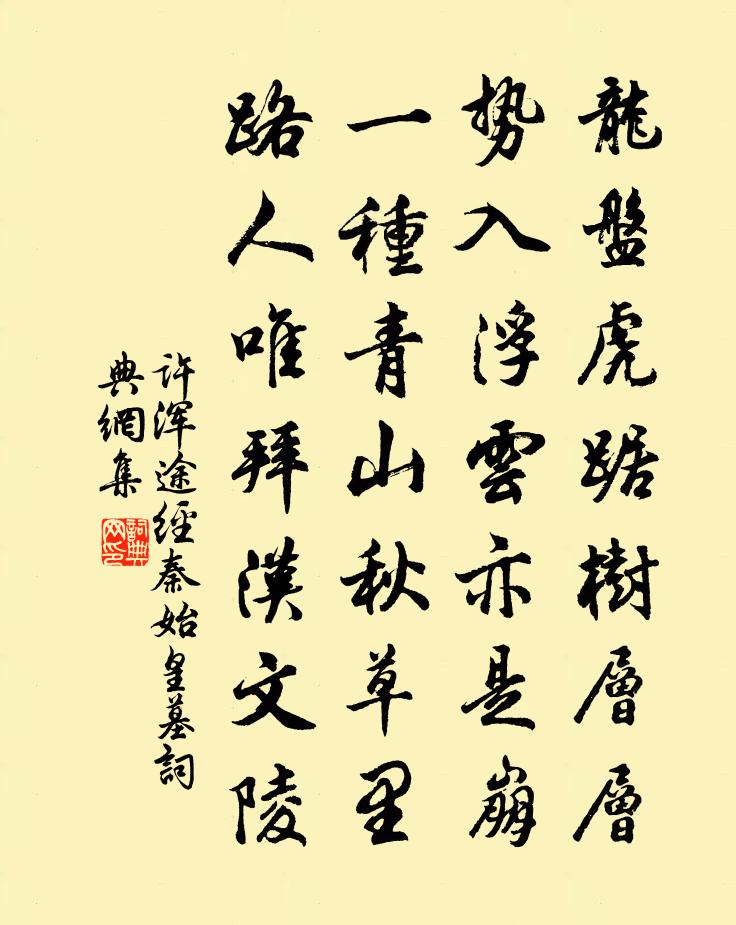 龍盤虎踞樹層層
勢入浮雲亦是崩
一種青山秋草里
路人唯拜漢文陵
许渾途經秦始皇墓詞
典網集
詞典
网印